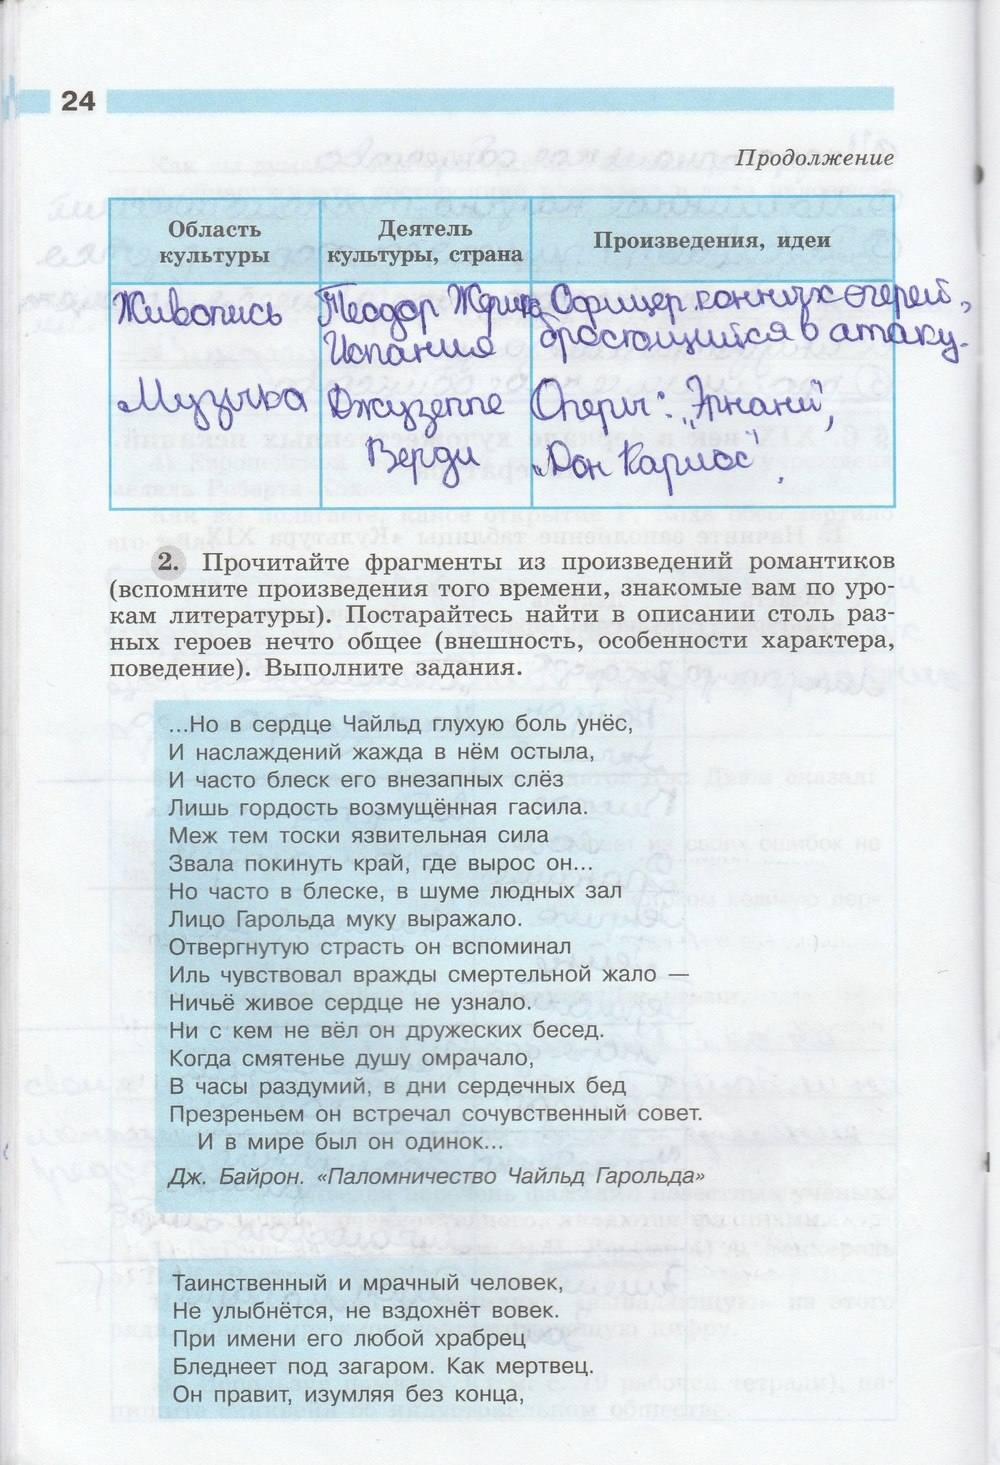 24
Продолжение
Область культуры
Деятель культуры, страна
Произведения, идеи
Живопись
Теодор
Испания
Офицер конных егерей,
бросающийся в атаку.
Музыка
Джузеппе
Верди
Оперы: "Эрнани",
"Дон Карлос",
2. Прочитайте фрагменты из произведений романтиков
(вспомните произведения того времени, знакомые вам по уро-
кам литературы). Постарайтесь найти в описании столь раз-
ных героев нечто общее (внешность, особенности характера,
поведение). Выполните задания.
...Но в сердце Чайльд глухую боль унёс,
И наслаждений жажда в нём остыла,
И часто блеск его внезапных слёз
Лишь гордость возмущённая гасила.
Меж тем тоски язвительная сила
Звала покинуть край, где вырос он...
Но часто в блеске, в шуме людных зал
Лицо Гарольда муку выражало.
Отвергнутую страсть он вспоминал
Иль чувствовал вражды смертельной жало —
Ничьё живое сердце не узнало.
Ни с кем не вёл он дружеских бесед.
Когда смятенье душу омрачало,
В часы раздумий, в дни сердечных бед
Презреньем он встречал сочувственный совет.
И в мире был он одинок...
Дж. Байрон. «Паломничество Чайльд Гарольда»
Таинственный и мрачный человек,
Не улыбнётся, не вздохнёт вовек.
При имени его любой храбрец
Бледнеет под загаром. Как мертвец.
Он правит, изумляя без конца,